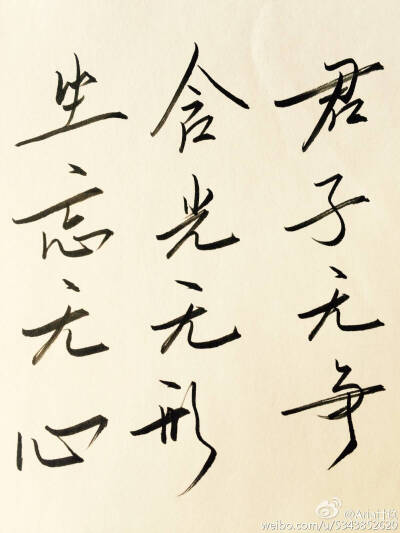 君子无争
含光无形
坐忘无心
weibo.com/u/5343852620